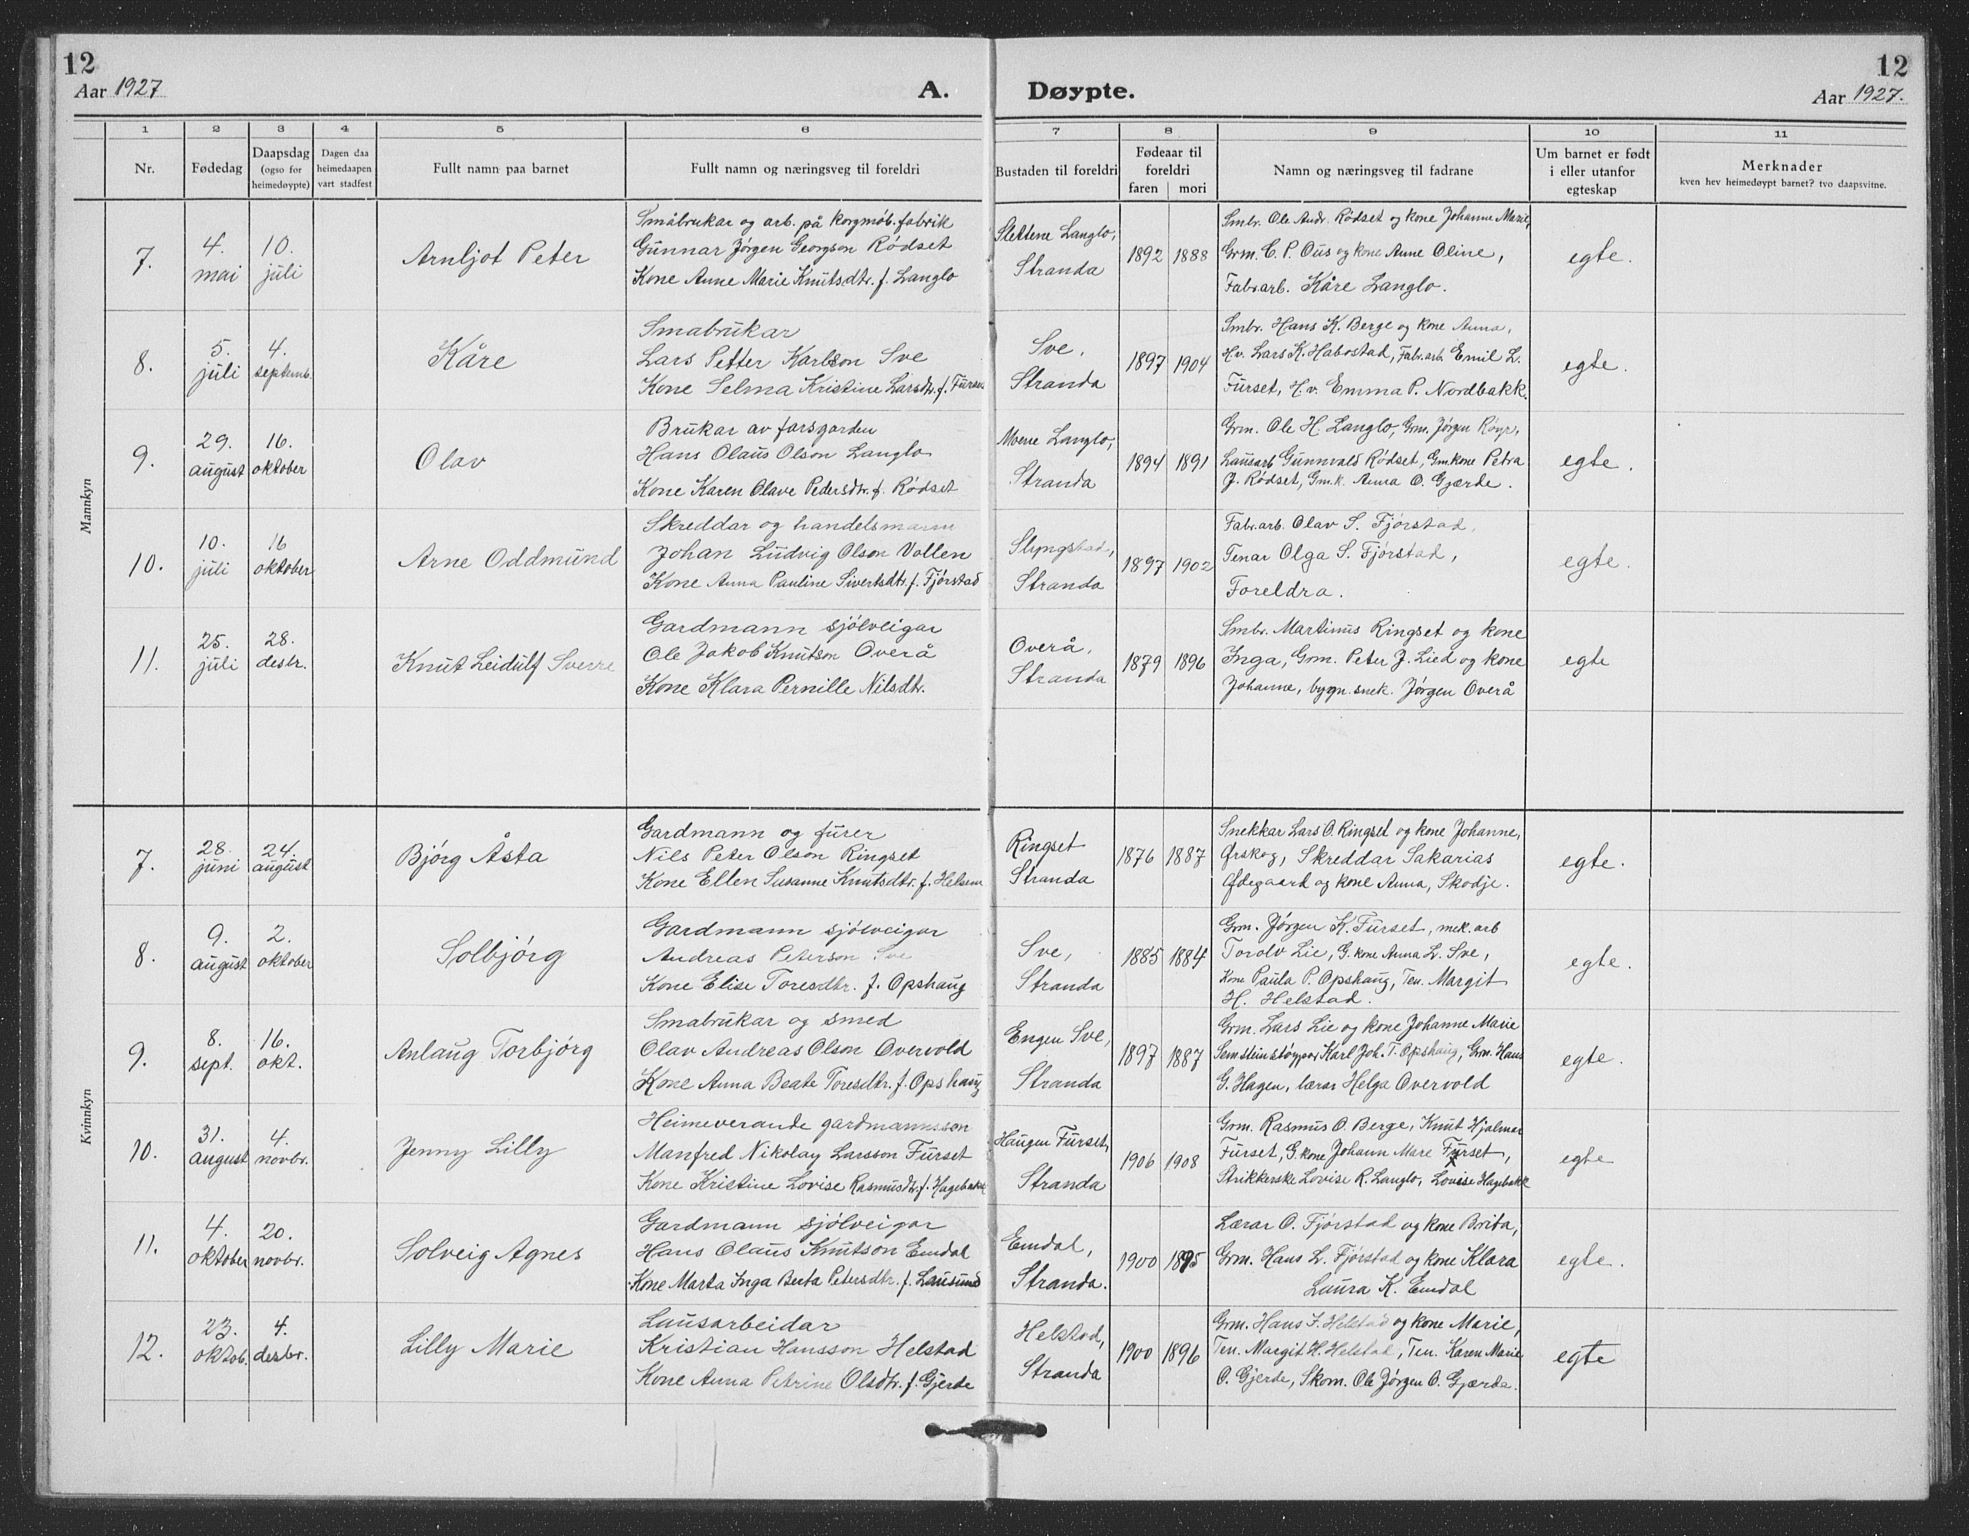 12
Aar 1927
A.
Døypte.
12
Aar 1927.
1 2 3 4 5 6 7 8 9 10 11
Nr.
Fødedag
Daapsdag
(ogso for
heimedøypte)
Dagen daa
heimedaapen
vart stadfest
Fullt namn paa barnet
Fullt namn og næringsveg til foreldri
Bustaden til foreldri
Fødeaar til
foreldri
faren mori
Namn og næringsveg til fadrane
Um barnet er født
i eller utanfor
egteskap
Merknader
kven hev heimedøypt barnet? tvo daapsvitne.
Mannkyn
7.
4.
mai
10.
juli
Arnljot Peter
Småbrukar og arb. på korgmøb.fabrik
Gunnar Jørgen Georgson Rødset
Kone Anne Marie Knutsdtr. f. Langlo
Slettene Langlo,
Stranda
1892 1888
Smbr. Ole Andr. Rødset og kone Johanne Marie,
Grm. C. P. Ous og kone Anne Oline,
Fabr.arb. Kåre Langlo.
egte.
8.
5.
juli
4.
septemb.
Kåre
Småbrukar
Lars Petter Karlson Sve
Kone Selma Kristine Larsdtr. f. Furset
Sve,
Stranda
1897 1904
Smbr. Hans K. Berge og kone Anna,
H.v. Lars K. Habostad, Fabr.arb. Emil L.
Furset, H.v. Emma P. Nordbakk.
egte.
9.
29.
august
16.
oktober
Olav
Brukar av farsgarden
Hans Olaus Olson Langlo
Kone Karen Olave Pedersdtr. f. Rødset
Moene Langlo,
Stranda
1894 1891
Grm. Ole H. Langlo, Grm. Jørgen Røyr,
Lausarb Gunnvald Rødset, Gm.kone Petra
J. Rødset, Gm.k. Anna O. Gjærde.
egte.
10.
10.
juli
16
oktober
Arne Oddmund
Skreddar og handelsmann
Johan Ludvig Olson Vollen
Kone Anna Pauline Sivertsdtr. f. Fjørstad
Slyngstad,
Stranda
1897 1902
Fabr.arb. Olav S. Fjørstad,
Tenar Olga S. Fjørstad,
Foreldra.
egte.
11.
25.
juli
28.
desbr.
Knut Leidulf Sverre
Gardmann sjølveigar
Ole Jakob Knutson Overå
Kone Klara Pernille Nilsdtr.
Overå,
Stranda
1879 1896
Smbr. Martinus Ringset og kone
Inga, Grm. Peter J. Lied og kone
Johanne, bygn.snek. Jørgen Overå
egte
Kvinnkyn
7.
28.
juni
24.
august
Bjørg Åsta
Gardmann og furer
Nils Peter Olson Ringset
Kone Ellen Susanne Knutsdtr. f. Helsem
Ringset
Stranda
1876 1887
Snekkar Lars O. Ringset og kone Johanne,
Ørskog, Skreddar Sakarias
Ødegaard og kone Anna, Skodje.
egte.
8.
9.
august
2.
oktober
Solbjørg
Gardmann sjølveigar
Andreas Peterson Sve
Kone Elise Toresdtr. f. Opshaug
Sve,
Stranda
1885 1884
Grm. Jørgen K. Furset, mek. arb
Torolv Lie, G.kone Anna L. Sve,
Kone Paula P. Opshaug, Ten. Margit
H. Helstad.
egte.
9.
8.
sept.
16.
okt.
Anlaug Torbjørg
Småbrukar og smed
Olav Andreas Olson Overvold
Kone Anna Beate Toresdtr. f. Opshaug
Engen Sve,
Stranda
1897 1887
Grm. Lars Lie og kone Johanne Marie
Sementstøypar Karl Joh. T. Opshaug, Grm. Hans
G. Hagen, lærar Helga Overvold
egte.
10.
31.
august
4.
novbr.
Jenny Lilly
Heimeverande gardmannsson
Manfred Nikolay Larsson Furset
Kone Kristine Lovise Rasmusdtr. f. Hagebakk
Haugen Furset,
Stranda
1906 1908
Grm. Rasmus O. Berge, Knut Hjalmar
Furset, G.kone Johann Mare Furset,
Strikkerske Lovise R. Langlo, Lovise Hagebakk
egte
11.
4.
oktober
20.
novbr.
Solveig Agnes
Gardmann sjølveigar
Hans Olaus Knutson Emdal
Kone Marta Inga Berta Petersdtr. f. Lausund
Emdal,
Stranda.
1900 1895
Lærar O. Fjørstad og kone Brita,
Grm. Hans L. Fjørstad og kone Klara
Laura K. Emdal
egte.
12.
23.
oktob.
4.
desbr.
Lilly Marie
Lausarbeidar
Kristian Hansson Helstad
Kone Anna Petrine Olsdtr. f. Gjerde
Helstad,
Stranda
1900 1896
Grm. Hans J. Helstad og kone Marie,
Ten. Margit H. Helstad, Ten. Karen Marie
O. Gjerde, Skom. Ole Jørgen O. Gjærde.
egte